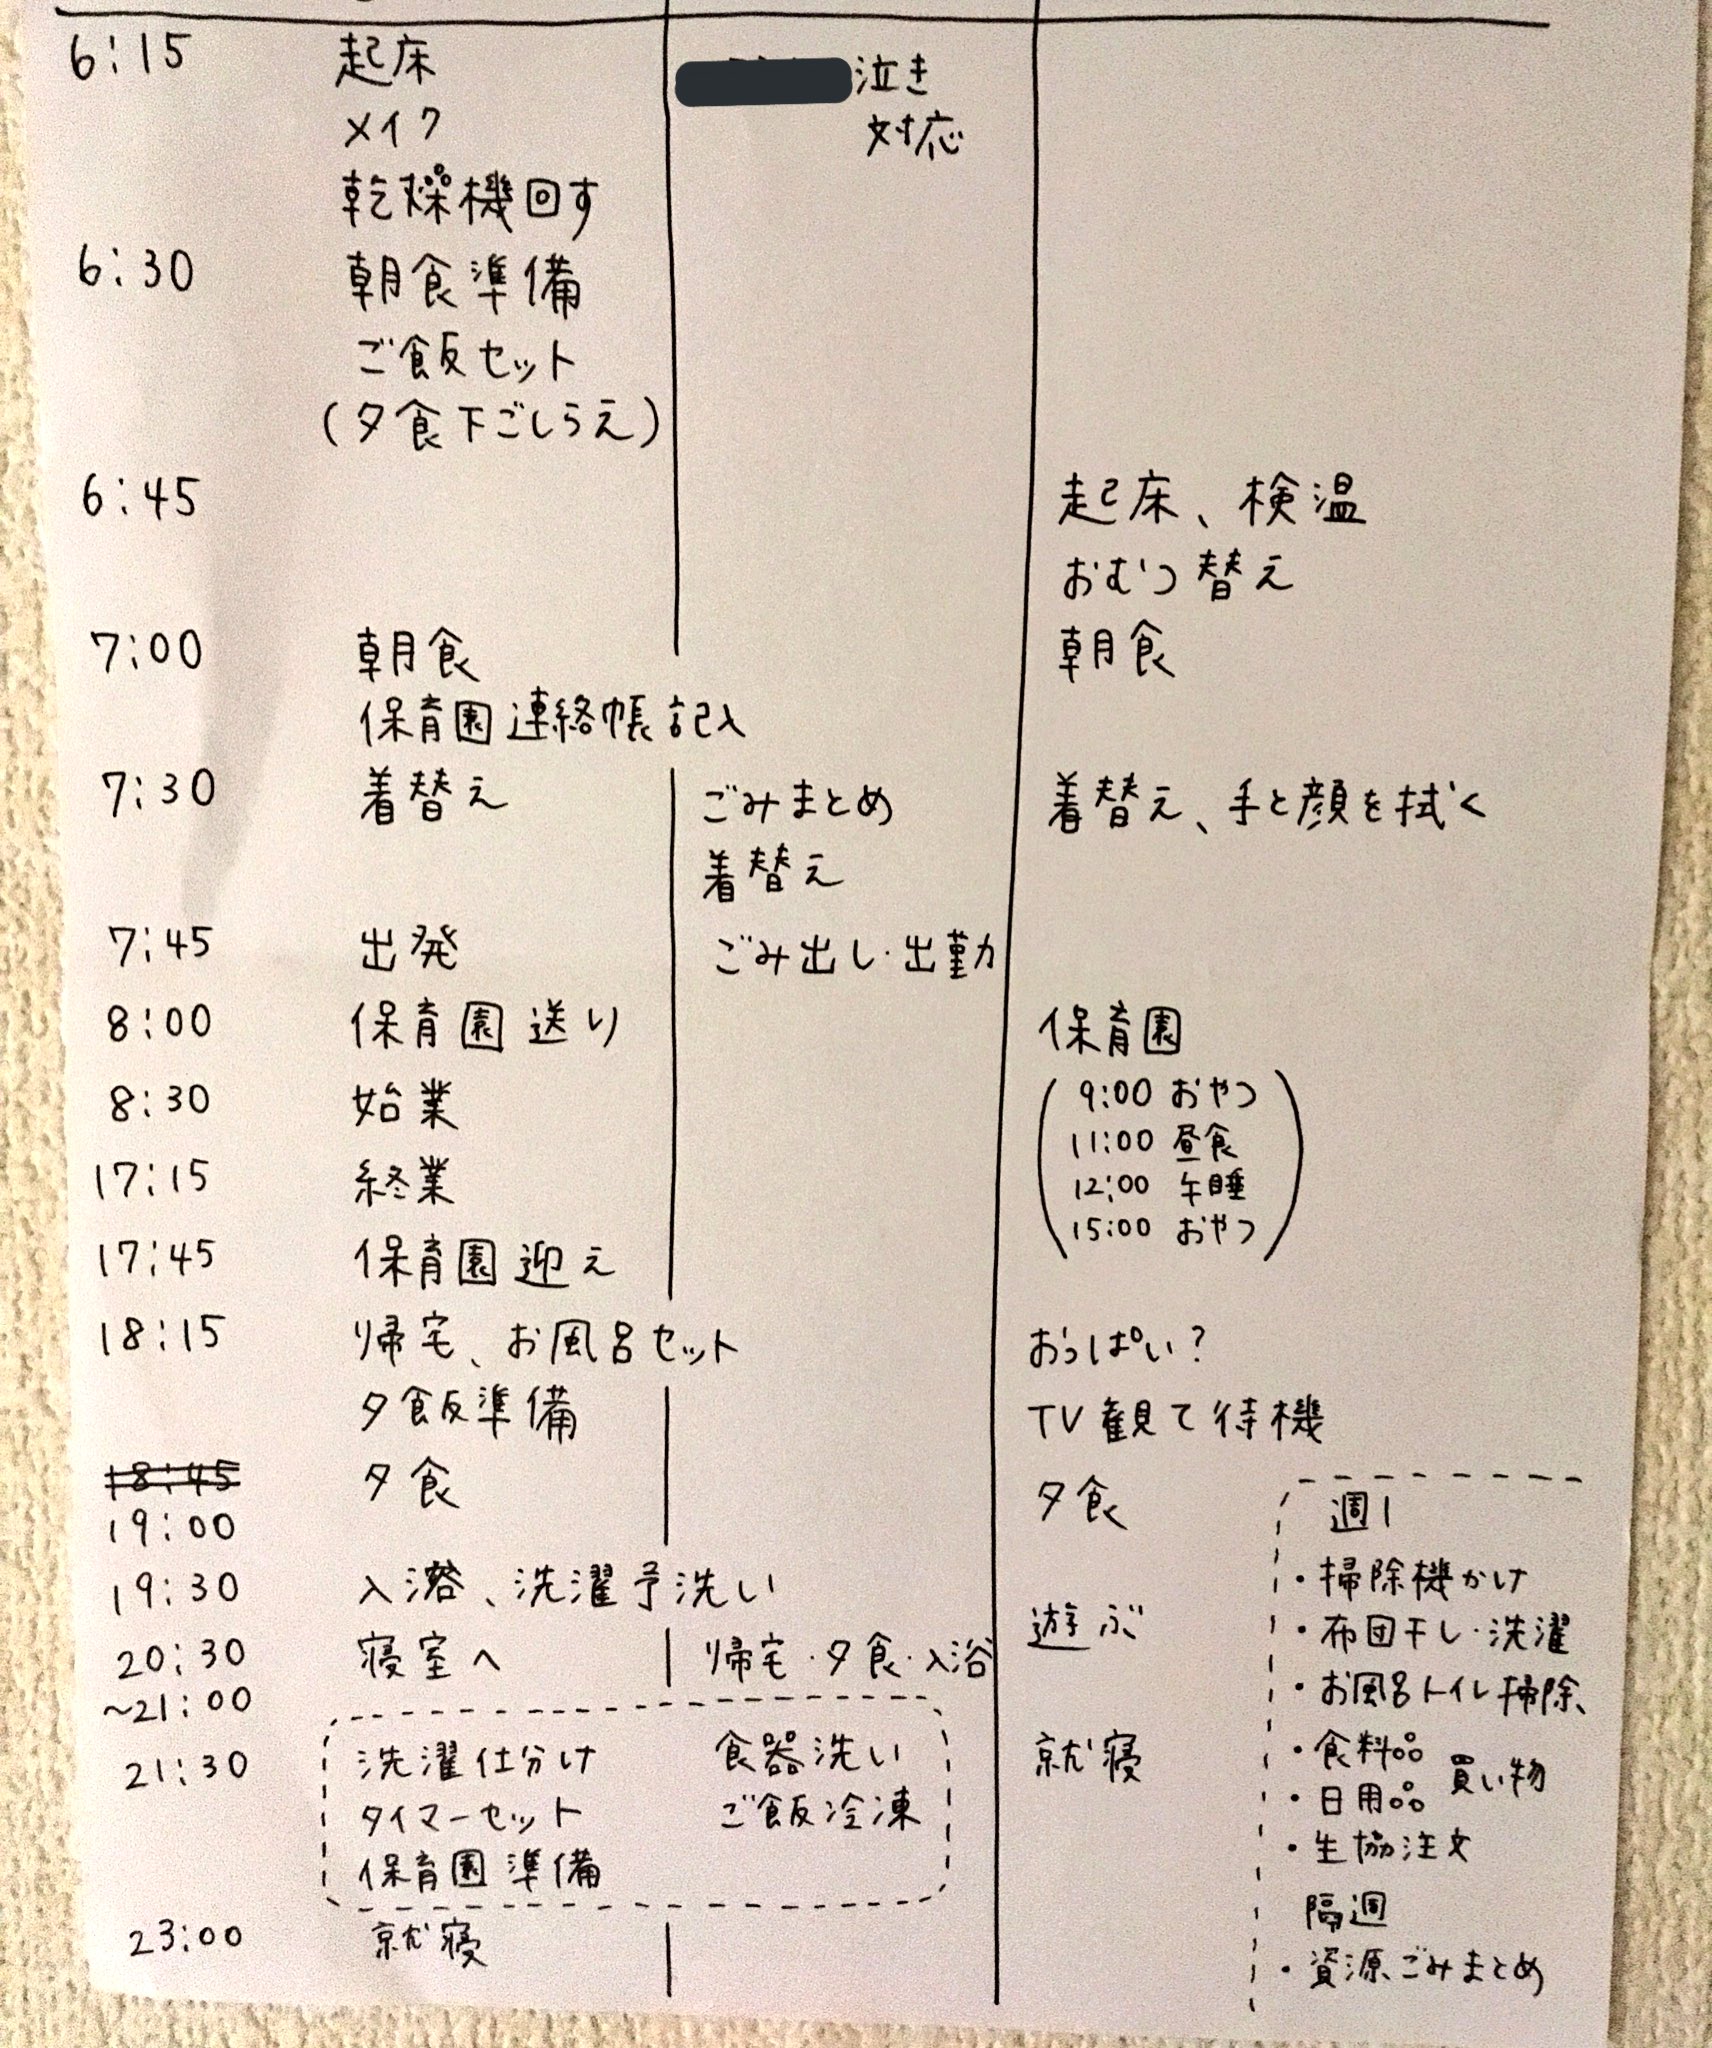 6:15 起床 泣き
メイク 対応
乾燥機回す
6:30 朝食準備
ご飯セット
(夕食下ごしらえ)
6:45 起床、検温
おむつ替え
7:00 朝食 朝食
保育園連絡帳記入
7:30 着替え ごみまとめ 着替え、手と顔を拭く
着替え
7:45 出発 ごみ出し・出勤
8:00 保育園送り 保育園
8:30 始業 (9:00 おやつ
11:00 昼食
17:15 終業 12:00 午睡
15:00 おやつ)
17:45 保育園迎え
18:15 帰宅、お風呂セット おっぱい?
夕飯準備 TV観て待機
18:45 夕食 夕食
19:00
19:30 入浴、洗濯予洗い 遊ぶ
20:30 寝室へ 帰宅・夕食・入浴
~21:00
21:30 洗濯仕分け 食器洗い 就寝
タイマーセット ご飯冷凍
保育園準備
23:00 就寝
週1
・掃除機かけ
・布団干し・洗濯
・お風呂トイレ掃除、
・食料品 買い物
・日用品
・生協注文
隔週
・資源ごみまとめ